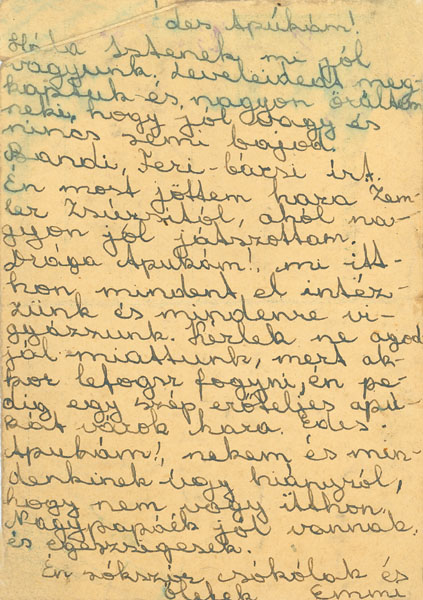 des Apukám!
Hála Istenek mi jól
vagyunk. Leveleidedt meg-
kaptuk és nagyon örültem
neki, hogy jól vagy és
nincs semi bajod.
Bandi, Feri-bácsi írt.
Én most jöttem haza Zem-
ler Zsuzsitól, ahol na-
gyon jól játszottam.
Drága Apukám!, mi itt-
hon mindent el intéz-
zünk és mindenre vi-
gyázzunk. Kérlek ne agod
jál miattunk, mert ak-
kor lefogsz fogyni, én pe-
dig egy szép erőteljes apu-
kát várok haza. Édes
Apukám!, nekem és min-
denkinek úgy hiányról,
hogy nem vagy itthon.
Nagypapáék jól vannak
és egészségesek.
Én sokszor csókolak és
ölelek Emmi